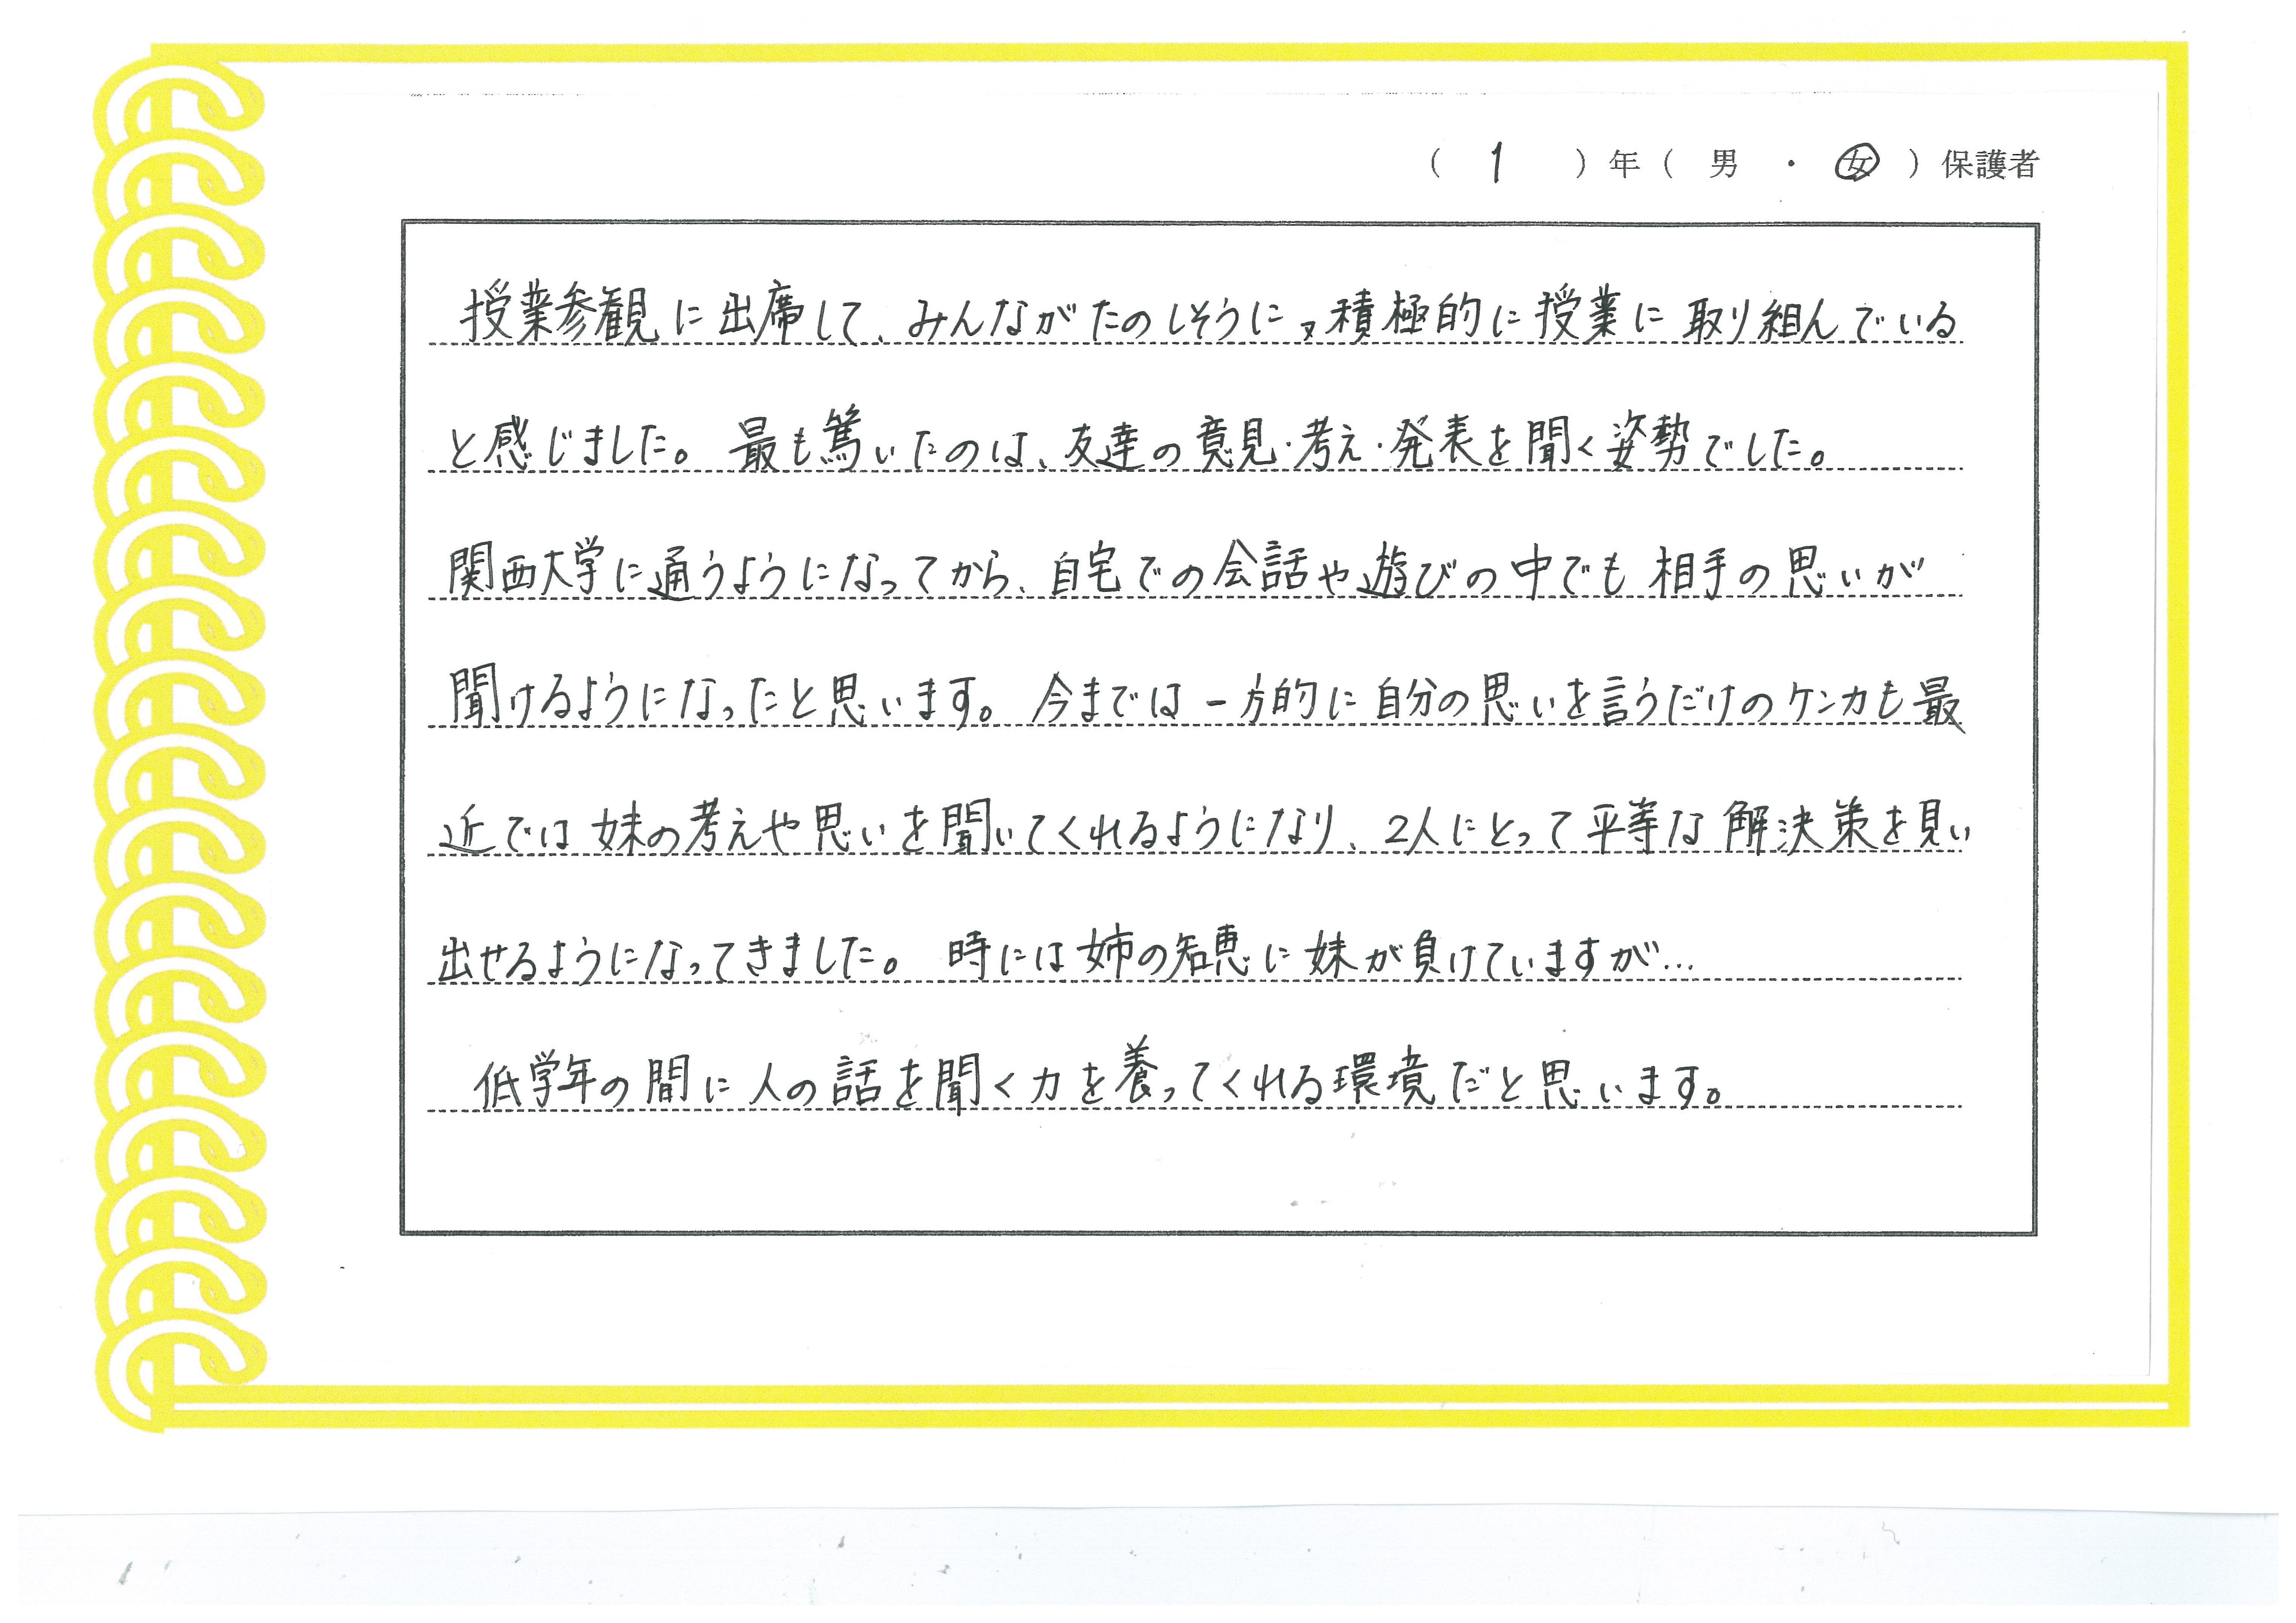 ( 1 ) 年 ( 男 ・ 女 ) 保護者
授業参観に出席して、みんながたのしそうに、又積極的に授業に取り組んでいる
と感じました。最も驚いたのは、友達の意見・考え・発表を聞く姿勢でした。
関西大学に通うようになってから、自宅での会話や遊びの中でも相手の思いが
聞けるようになったと思います。今までは一方的に自分の思いを言うだけのケンカも最
近では妹の考えや思いを聞いてくれるようになり、2人にとって平等な解決策を見い
出せるようになってきました。時には姉の知恵に妹が負けていますが…
低学年の間に人の話を聞く力を養ってくれる環境だと思います。